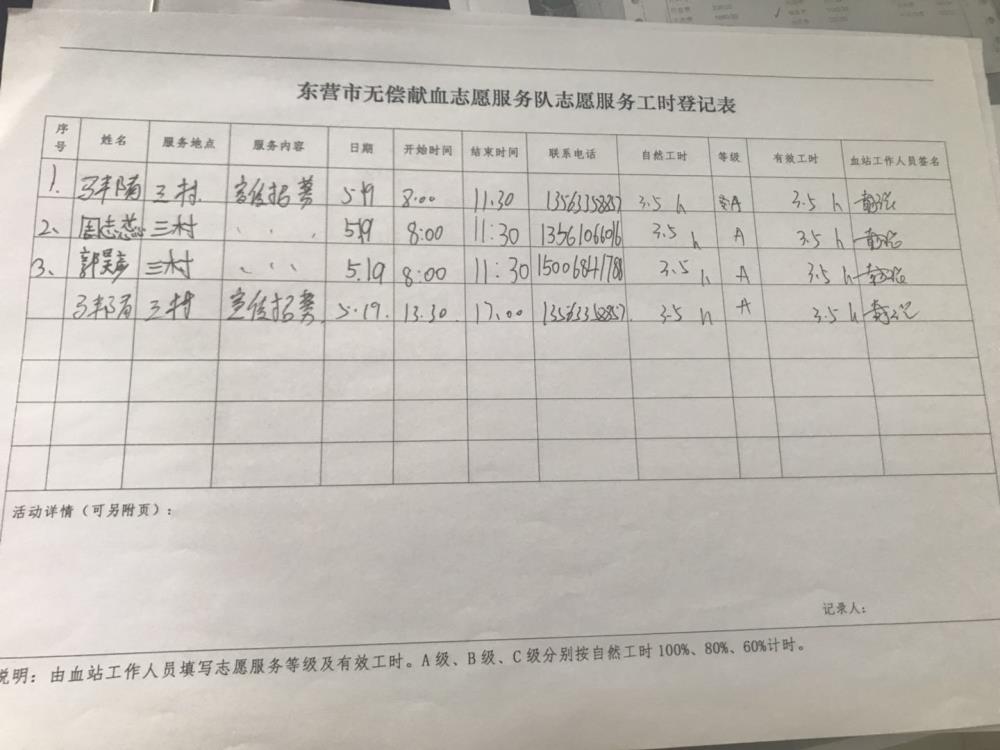 东营市无偿献血志愿服务队志愿服务工时登记表
序号 姓名 服务地点 服务内容 日期 开始时间 结束时间 联系电话 自然工时 等级 有效工时 血站工作人员签名
1. 三村 宣传招募 5.19 8:00 11:30 3.5 h A 3.5 h
2、 周志蕊 三村 、 、 、 5.19 8:00 11:30 3.5 h A 3.5 h
3、 三村 、 、 、 5.19 8:00 11:30 15006841788 3.5 h A 3.5 h
三村 宣传招募 5.19. 13:30 17:00 3.5 h A 3.5 h
活动详情（可另附页）：
记录人：
说明：由血站工作人员填写志愿服务等级及有效工时。A级、B级、C级分别按自然工时100%、80%、60%计时。